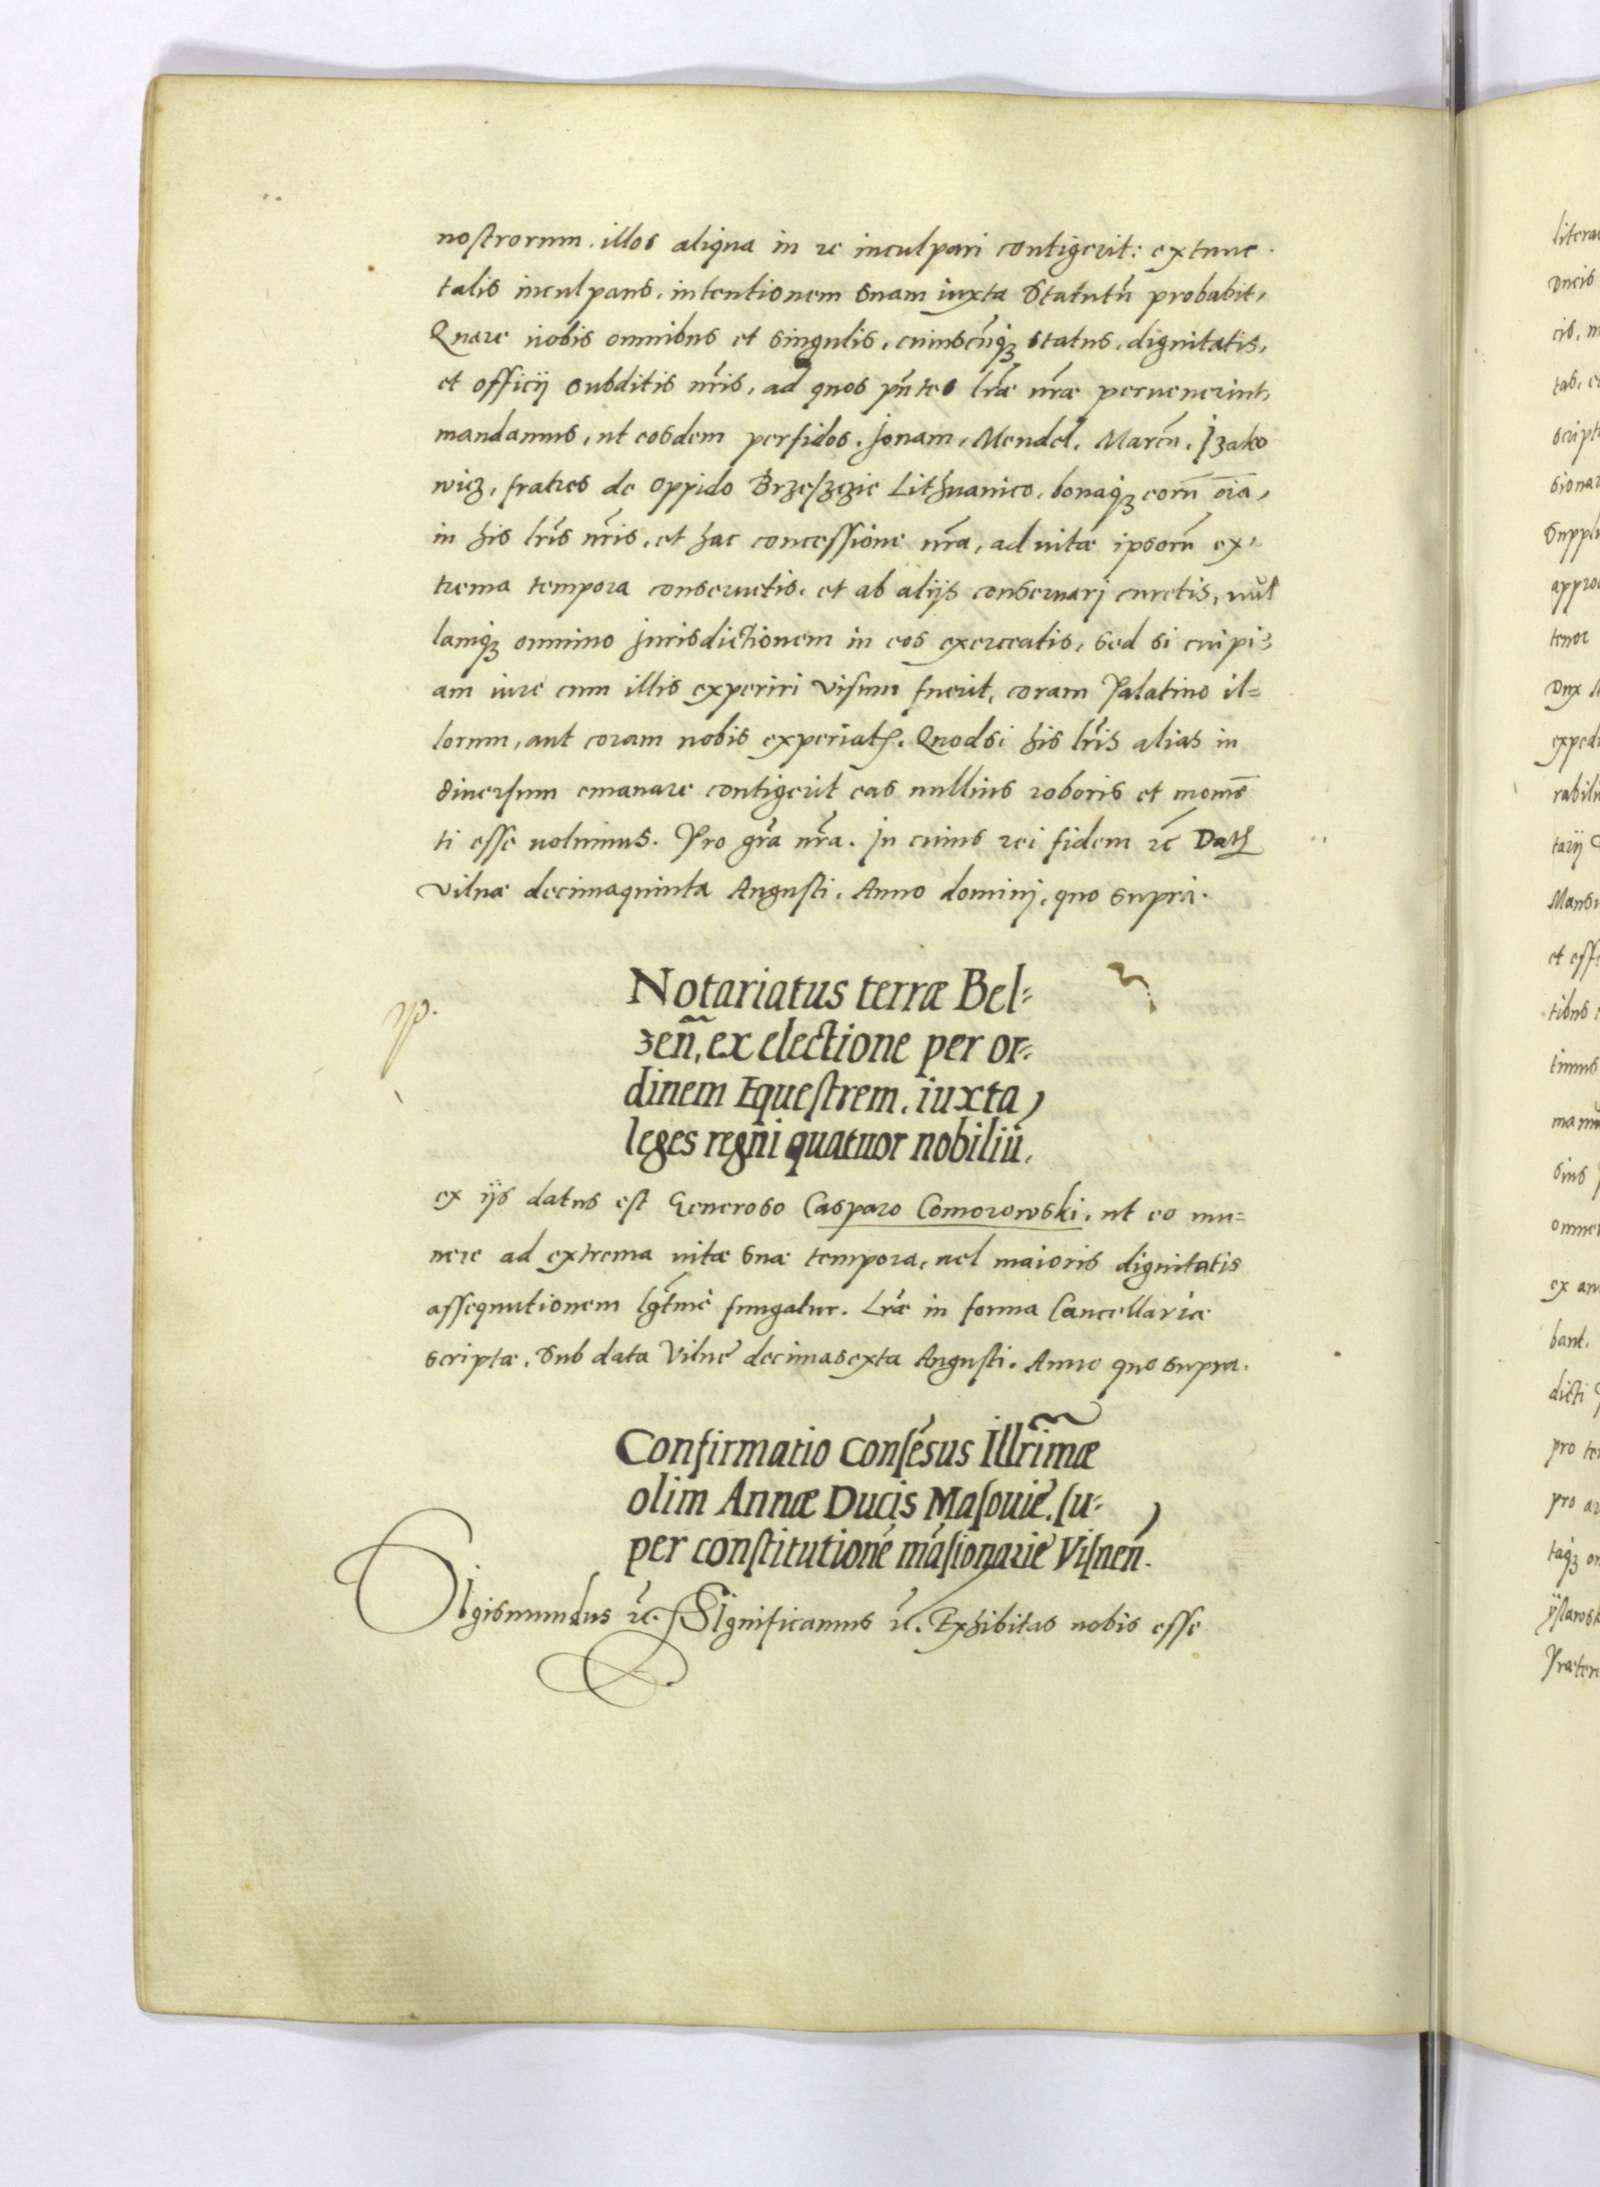 nostrorum. illos aliqua in re inculpari contigerit: extunc
talis inculpans, intentionem suam iuxta Statutū probabit,
Quare uobis omnibus et singulis, cuiuscūqꝫ status, dignitatis,
et officij subditis nr̃is, ad quos pn̄tes lr̃æ nr̃æ peruenerint,
mandamus, ut eosdem perfidos. Jonam, Mendel, Marcū, Jzako
wicz, fratres de oppido Brzesczie Lithuanico, bonaqꝫ eorū oīa,
in his lr̃is nr̃is, et hac concessione nr̃a, ad uitæ ipsorū ex-
trema tempora conseruetis. et ab alijs conseruarj curetis, nul
lamqꝫ omnino jurisdictionem in eos exerceatis, sed si cuipi-
am iure cum illis experiri visum fuerit, coram Palatino il=
lorum, aut coram nobis experiatꝛ. Quodsi his lr̃is alias in
diuersum emanare contigerit eas nullius roboris et momē
ti esse uolumus. Pro gr̃a nr̃a. In cuius rei fidem ꝛc̄ Datꝭ
Vilnæ decimaquinta Augusti. Anno dominj, quo supra.
Notariatus terræ Bel=
zen̄, ex electione per or=
dinem Equestrem, iuxta
leges regni quatuor nobiliū,
ex ijs datus est Generoso Casparo Comorowski, ut eo mu=
nere ad extrema uitæ suæ tempora, uel maioris dignitatis
assequutionem lgt̄mè fungatur. Lr̃æ in forma Cancellariæ
scriptæ. Sub data Vilnę decimasexta Augusti. Anno quo supra.
Confirmatio consēsus Illr̃imæ
olim Annæ Ducis Masouię, su=
per constitutionē māsionarię Visnen̄.
Sigismundus ꝛc̄. Significamus ꝛc̄. Exhibitas nobis esse